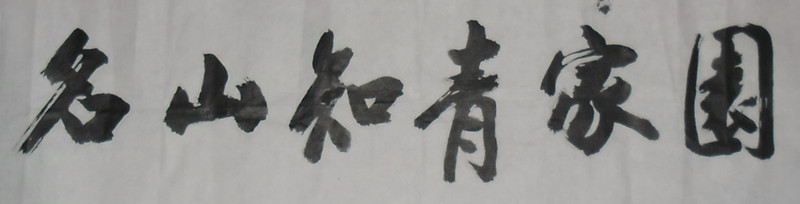 名山知青家园